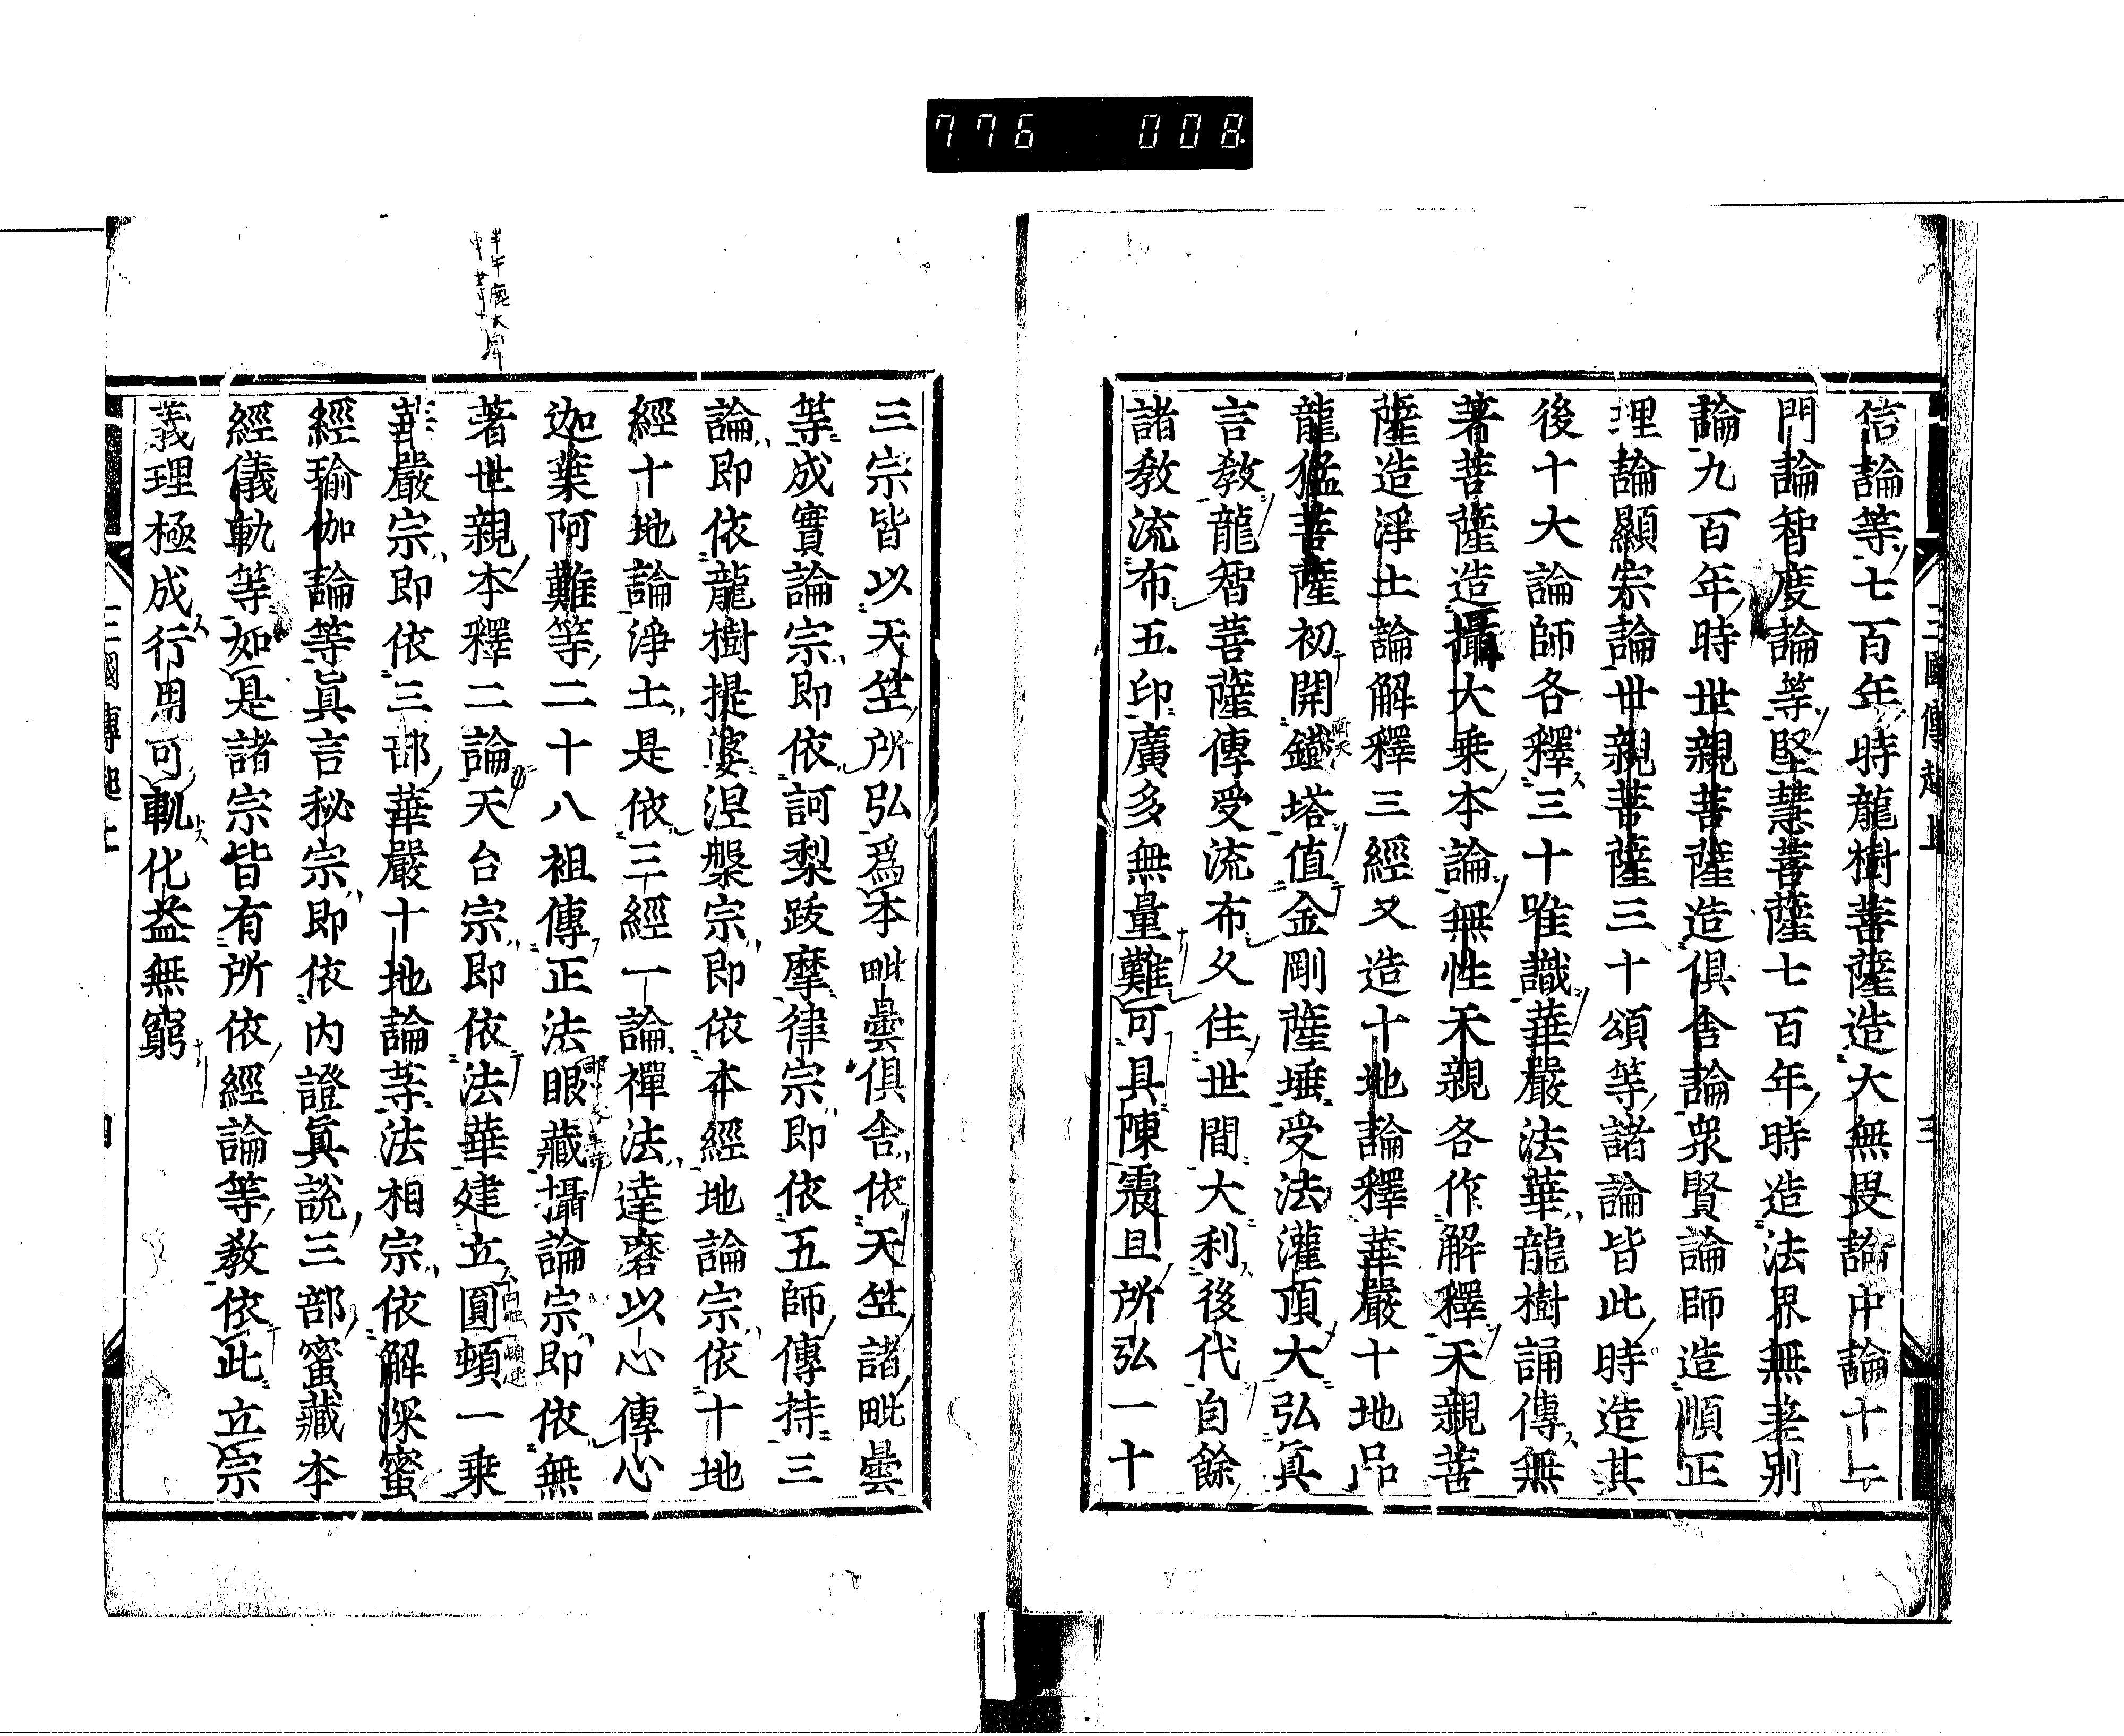 776 008
信論等七百年時龍樹菩薩造大無畏論中論十二
門論智度論等堅慧菩薩七百年時造法界無差別
論九百年時世親菩薩造俱舍論衆賢論師造順正
理論顯宗論世親菩薩三十頌等諸論皆此時造其
後十大論師各釋三十唯識華嚴法華龍樹誦傳無
著菩薩造攝大乗本論無性天親各作解釋天親菩
薩造淨土論解釋三經又造十地論釋華嚴十地品
龍猛菩薩初開鐵塔值金剛薩埵受法灌頂大弘眞
言敎龍智菩薩傳受流布久住世間大利後代自餘
諸敎流布五印廣多無量難可具陳震旦所弘一十
三宗皆以天竺所弘爲本毗曇俱舍依天竺諸毗曇
等成實論宗即依訶梨跋摩律宗即依五師傳持三
論即依龍樹提婆涅槃宗即依本經地論宗依十地
經十地論淨土是依三經一論禪法達磨以心傳心
迦葉阿難等二十八祖傳正法眼藏攝論宗即依無
著世親本釋二論天台宗即依法華建立圓頓一乗
華嚴宗即依三部華嚴十地論等法相宗依解深蜜
經瑜伽論等眞言秘宗即依内證眞說三部蜜藏本
經儀軌等如是諸宗皆有所依經論等敎依此立宗
義理極成行用可軌化益無窮
三國傳